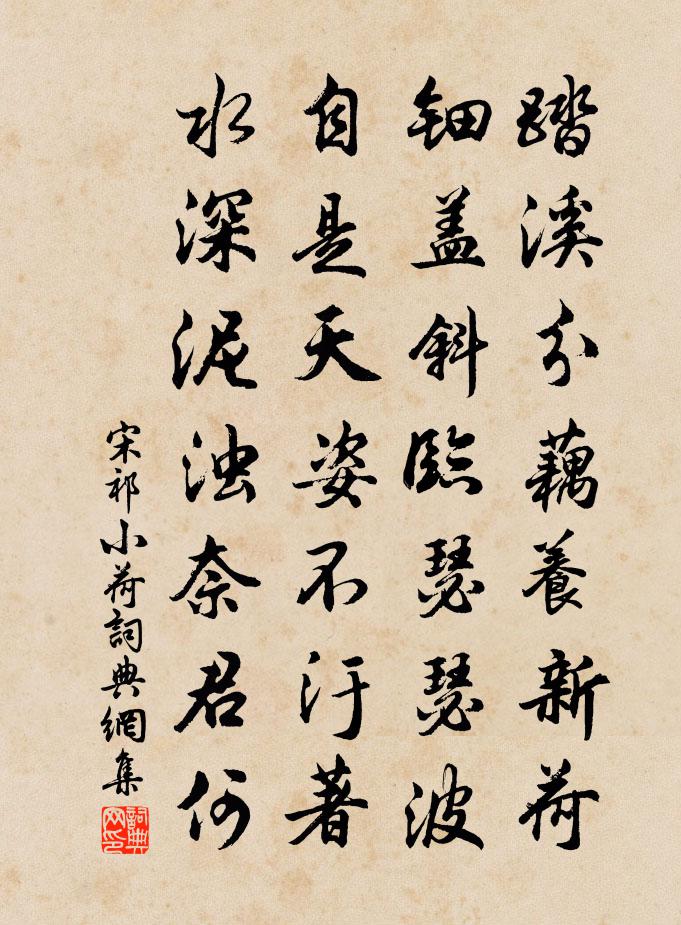 踏溪分藕養新荷
钿盖斜臨瑟瑟波
自是天姿不汙著
水深泥浊奈君何
宋祁小荷詞典網集
詞典网印